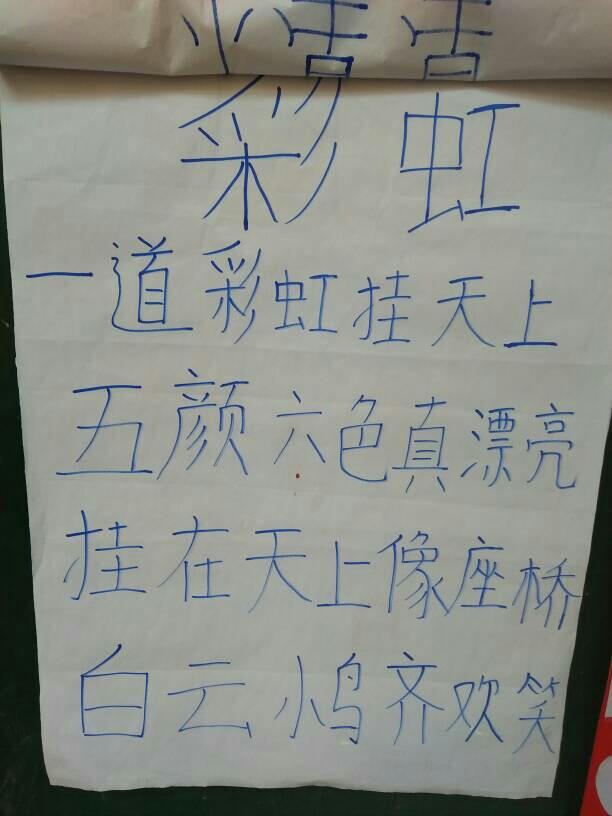 彩虹
一道彩虹挂天上
五颜六色真漂亮
挂在天上像座桥
白云小鸟齐欢笑